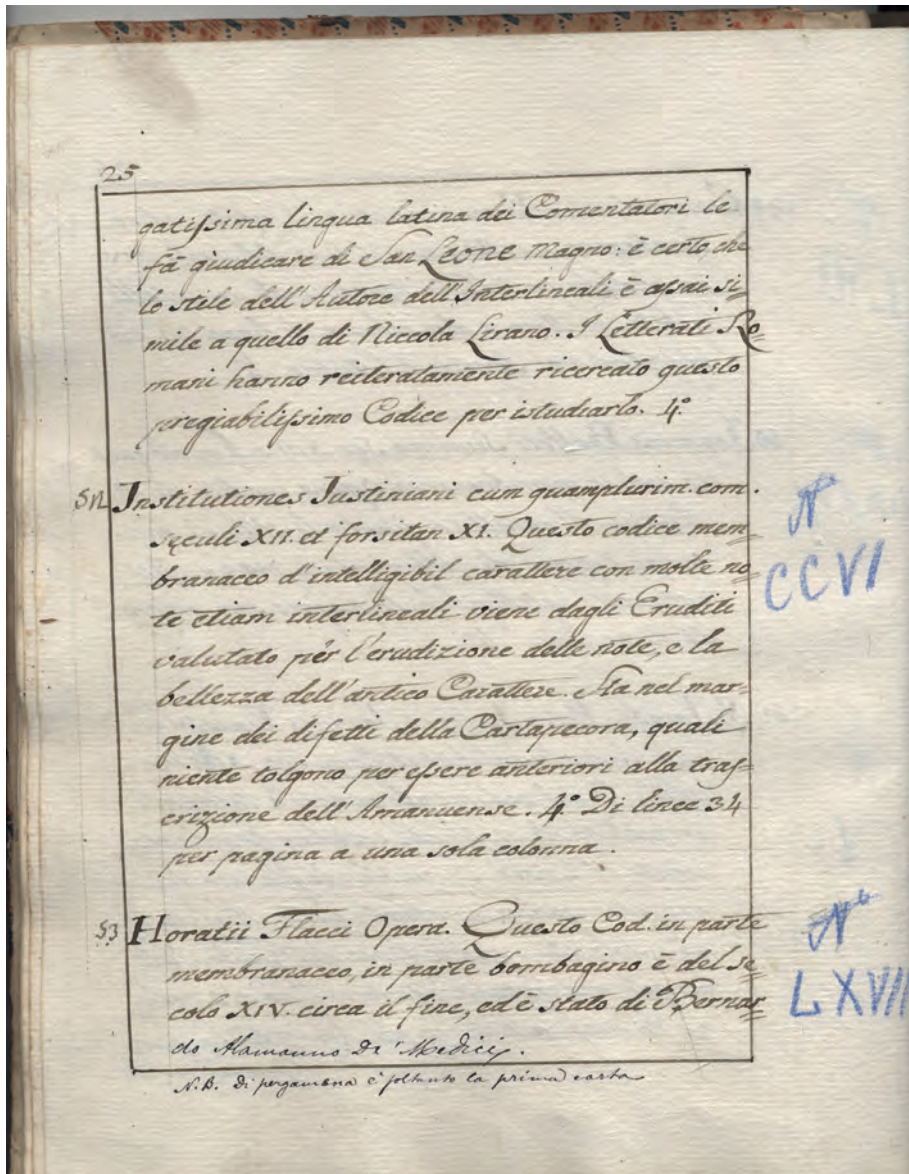 25
gatissima lingua latina dei Comentatori le
fà giudicare di San Leone Magno: è certo, che
lo stile dell'Autore dell'Interlineali è assai si=
mile a quello di Niccola Lirano. I Letterati Ro=
mani hanno reiteratamente ricercato questo
pregiabilissimo Codice per istudiarlo. 4.º
52 Institutiones Justiniani cum quamplurim. com.
sęculi XII. et forsitan XI. Questo codice mem=
branaceo d'intelligibil carattere con molte no=
te etiam interlineali viene dagli Eruditi
valutato per l'erudizione delle note, e la
bellezza dell'antico Carattere. Ha nel mar=
gine dei difetti della Cartapecora, quali
niente tolgono per essere anteriori alla tras=
crizione dell'Amanuense. 4.º Di linee 34
per pagina a una sola colonna.
Nº
CCVI
53 Horatii Flacci Opera. Questo Cod. in parte
membranaceo, in parte bombagino è del se=
colo XIV. circa il fine, ed è stato di Bernar=
do Alamanno De' Medici.
Nº
LXVII
N.B. Di pergamena è soltanto la prima carta